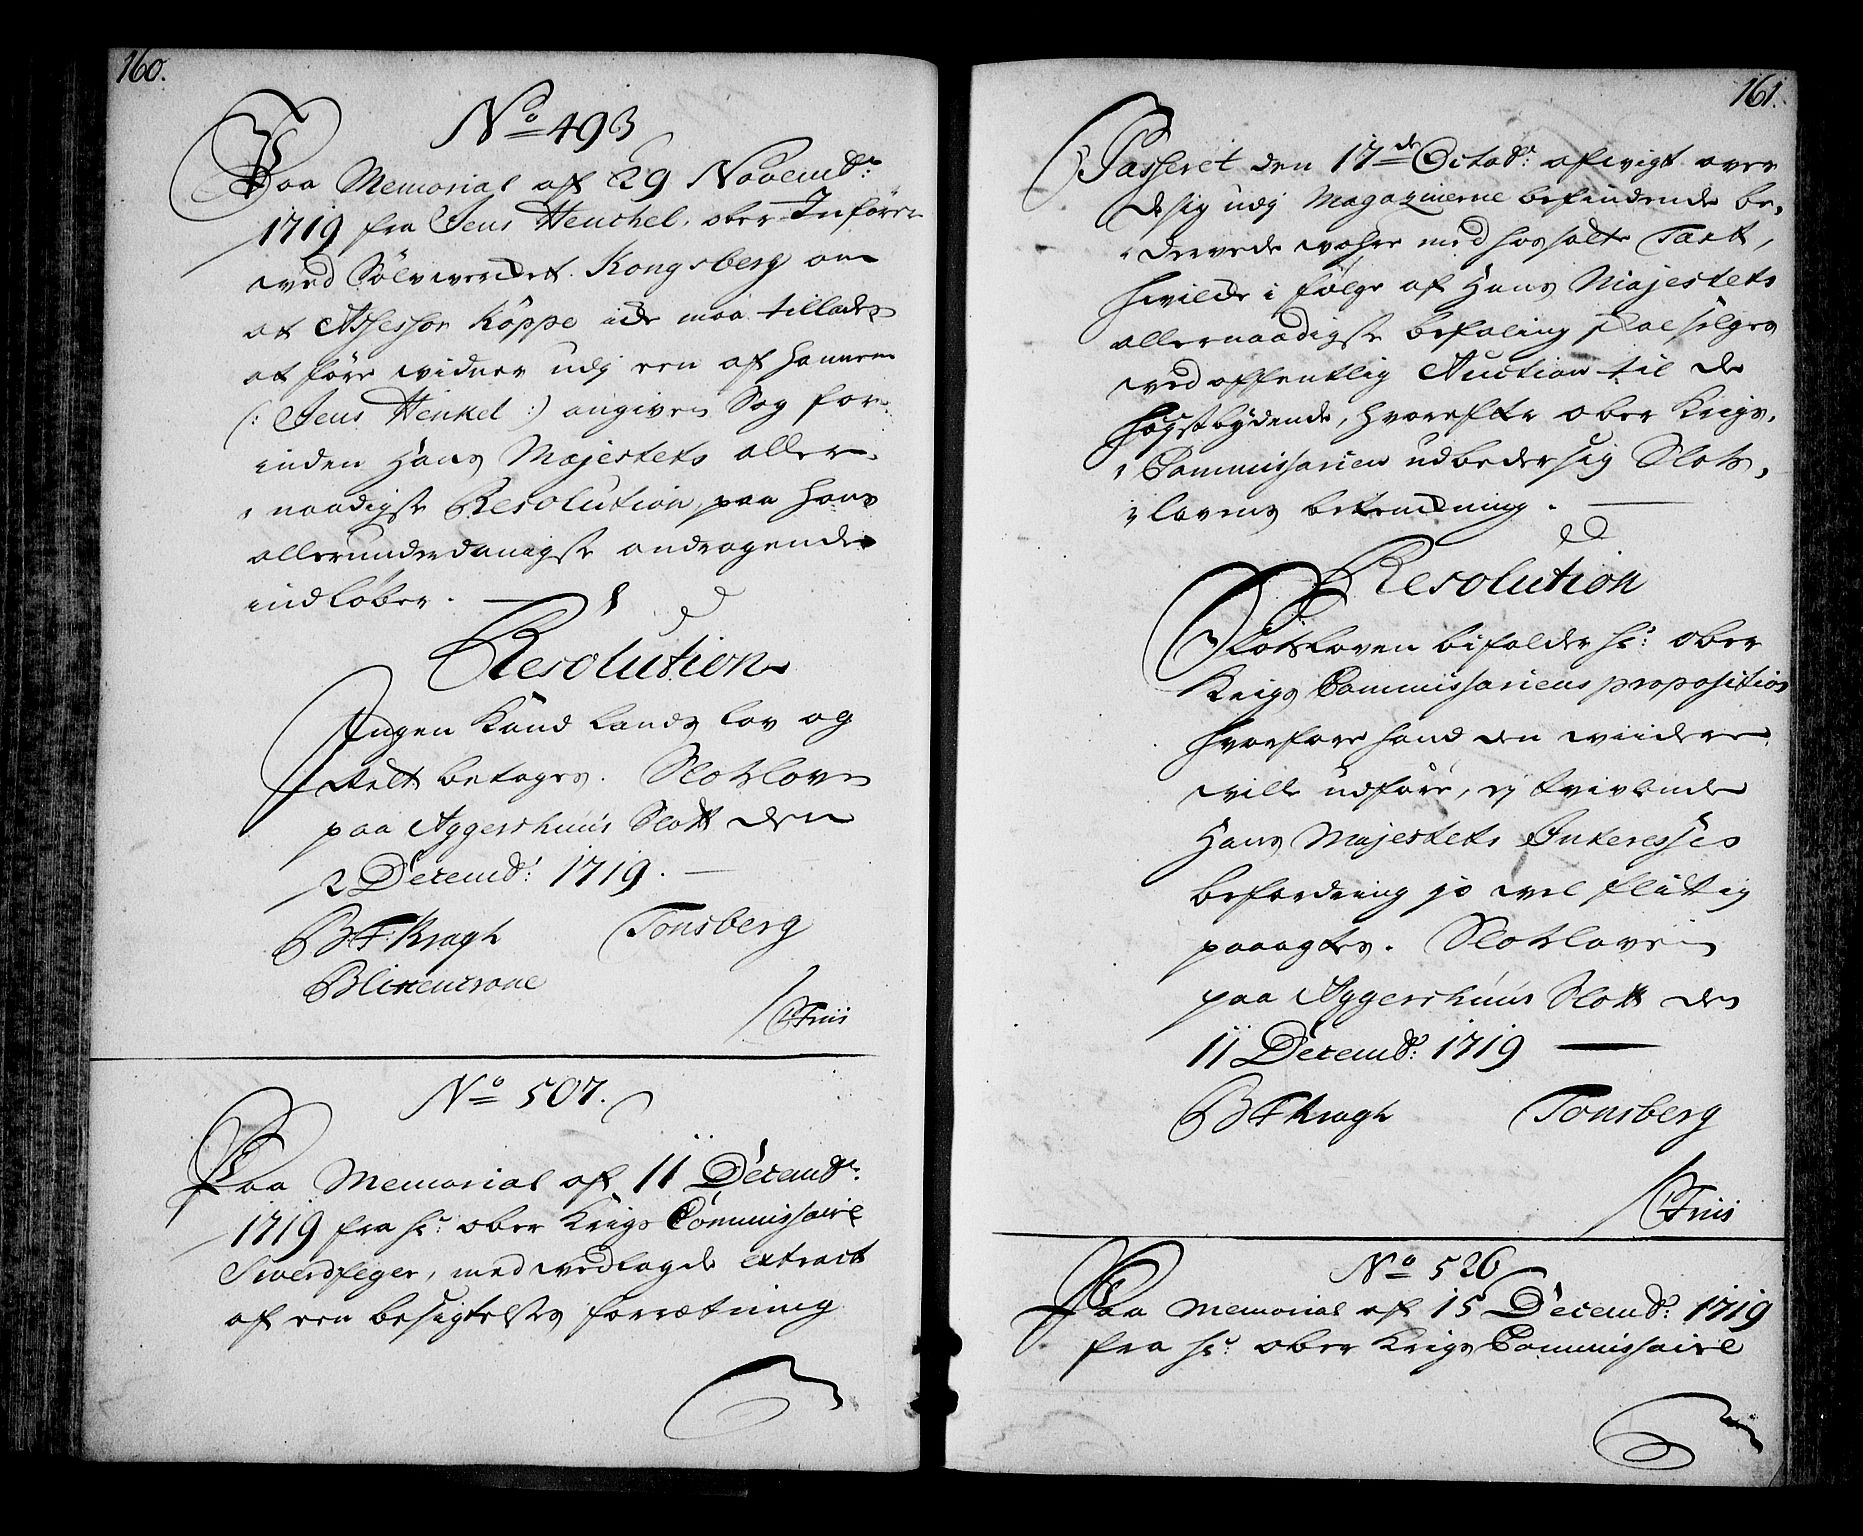 160.
No 493
Paa Memorial af 29 Novembr:
1719 fra Jens Henchel, ober-Införer
ved Sölvverchet Kongsberg om
at Assessor Köppe icke maa tillades
at före vidner udj een af hannem
(: Jens Henkel :) angiven Sag for-
inden Hans Majestets aller-
naadigste Resolution paa hans
allerunderdanigste andragende
indlöber.
Resolution
Ingen Kand Lands lov og
Rett betages. Slotzloven
paa Aggershuus Slott den
2 Decembr: 1719.
BF: Kragh Tonsberg
Blixencrone
Friis
No 507.
Paa Memorial af 11 Decembr:
1719 fra Hr: ober Krigs Commissaire
Swerdfeger, med vedlagde extract
af een besigtelses forrætning
161.
Passeret den 17de Octobr: afvigt over
de sig udj Magazinerne befindende be-
dervede vahre med hossatte Taxt,
hvilcke i fölge af Hans Majestets
allernaadigste befaling skal selges
ved offentlig Auction til de
högstbydende, hvorefter ober Krigs-
Commissarien udbeder sig Slots-
lovens betenckning.
Resolution
Slotsloven bifalder Hr: ober
Krigs Commissariens proposition
hvorfore hand den viidere
ville udföre, ej tvivlende
Hans Majestets Interesses
befordring jo vel flittig
paaagtes. Slotzloven
paa Aggershuus Slott den
11 Decembr: 1719
BF Kragh Tonsberg
Friis
No 526
Paa Memorial af 15 Decembr: 1719
fra Hr: ober Krigs Commissaire